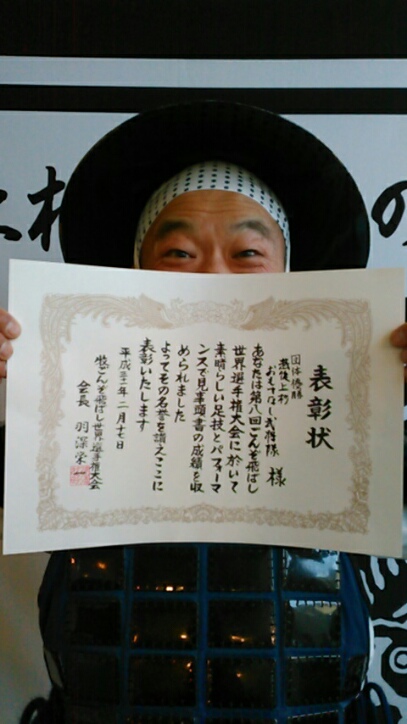 表彰状
団体優勝
越後上杉
おもてなし武将隊 様
あなたは第八回ごんぞ飛ばし
世界選手権大会に於いて
素晴らしい足技とパフォーマ
ンスで見事頭書の成績を収
められました
よってその名誉を讃えここに
表彰いたします
平成三十二年二月十七日
ごんぞ飛ばし世界選手権大会
会長 羽深栄一
の